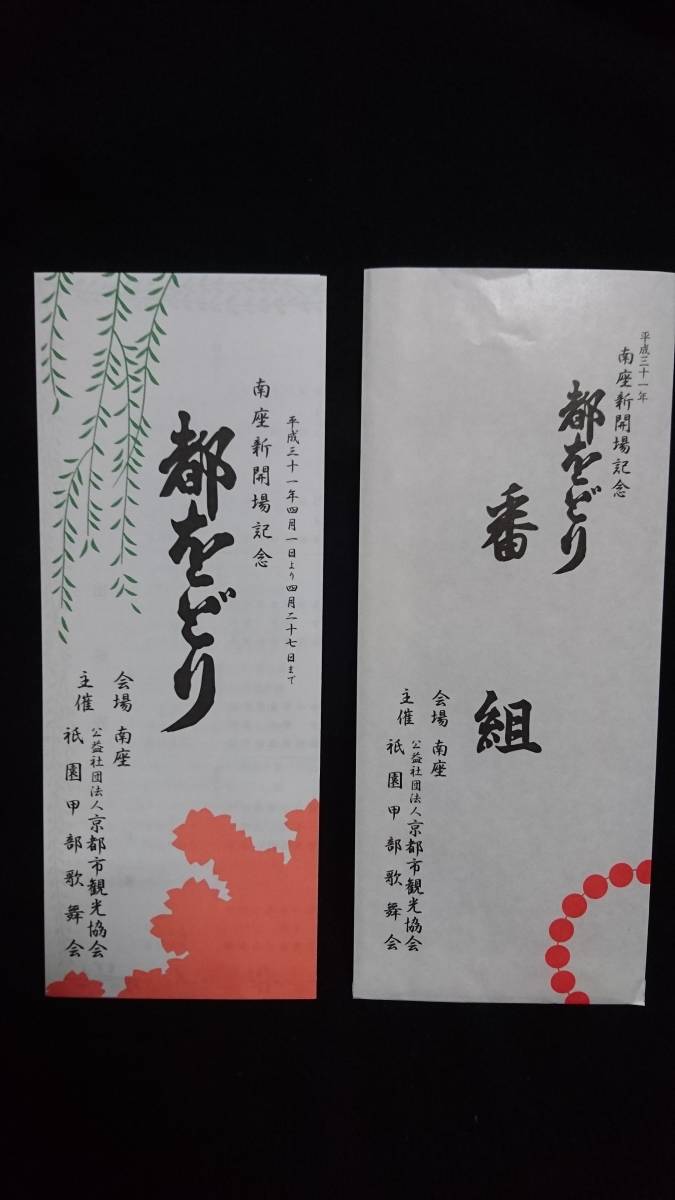 平成三十一年四月一日より四月二十七日まで
南座新開場記念
都をどり
会場 南座
主催 公益社団法人京都市観光協会
祇園甲部歌舞会
平成三十一年
南座新開場記念
都をどり
番組
会場 南座
主催 公益社団法人京都市観光協会
祇園甲部歌舞会